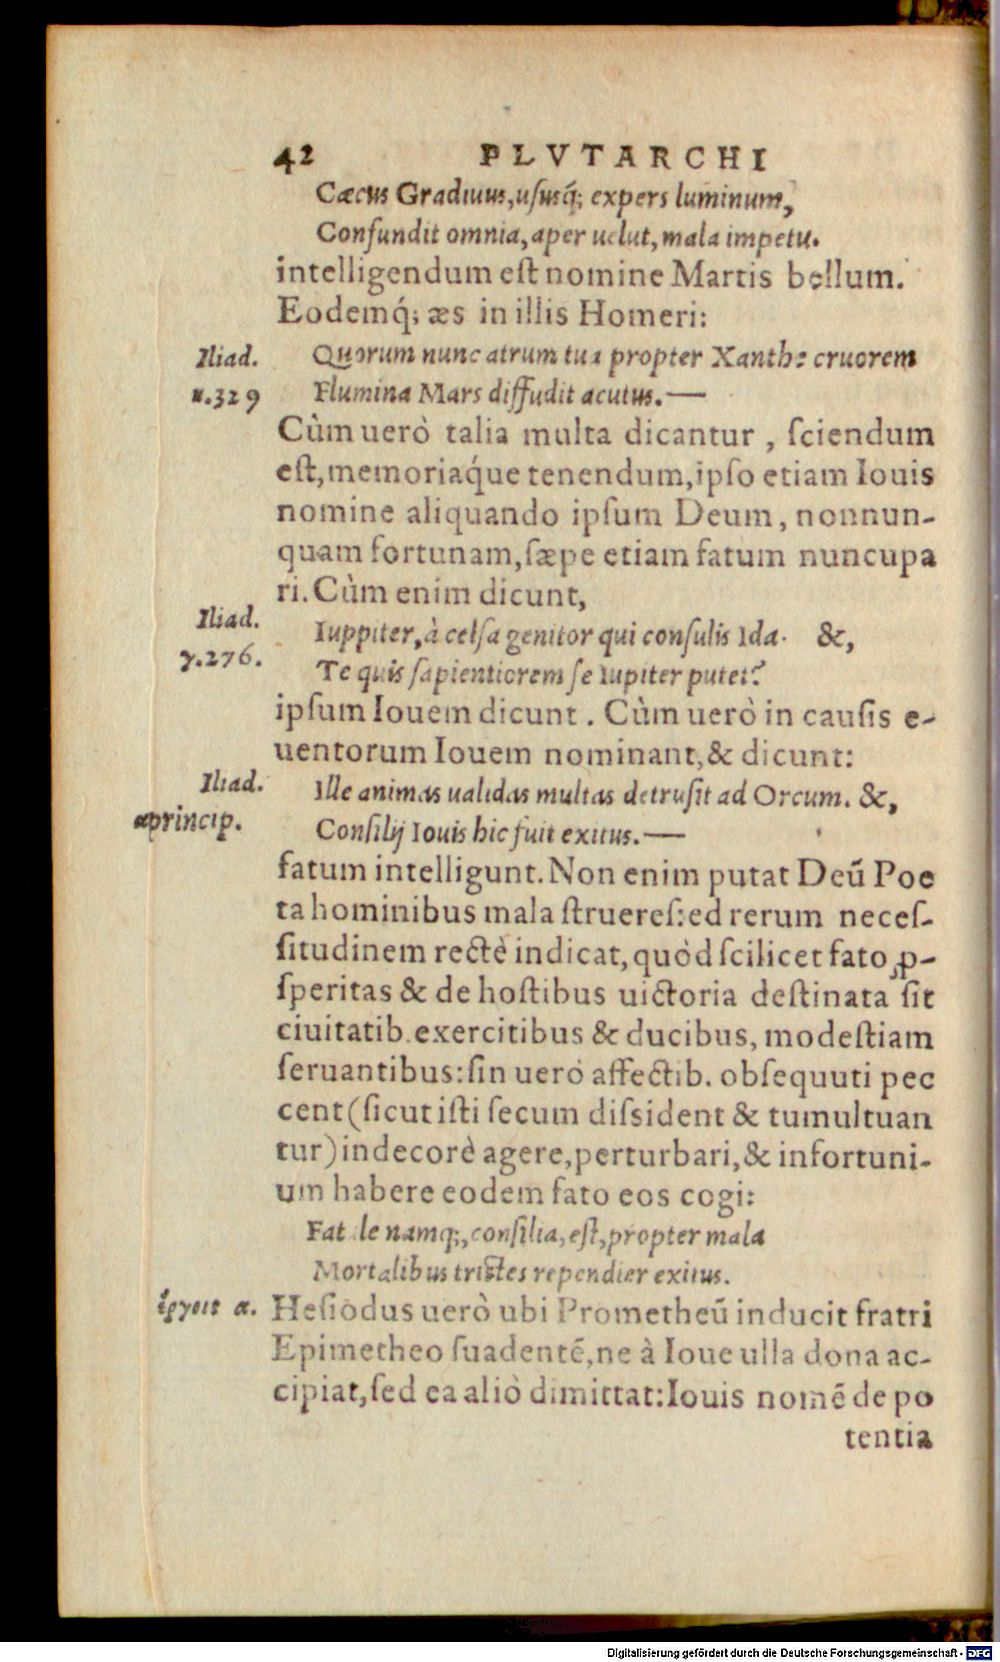 42 PLVTARCHI
Cæcus Gradiuus, uſusq́; expers luminum,
Confundit omnia, aper uelut, mala impetu.
intelligendum eſt nomine Martis bellum.
Eodemq́; æs in illis Homeri:
Iliad.
Quorum nunc atrum tua propter Xanthe cruorem
η.329
Flumina Mars diffudit acutus.—
Cùm uerò talia multa dicantur, ſciendum
eſt, memoriaq́ue tenendum, ipſo etiam Iouis
nomine aliquando ipſum Deum, nonnun-
quam fortunam, ſæpe etiam fatum nuncupa
ri. Cùm enim dicunt,
Iliad.
Iuppiter, à celſa genitor qui conſulis Ida. &,
γ.276.
Te quis ſapientiorem ſe Iupiter putet?
ipſum Iouem dicunt. Cùm uerò in cauſis e-
uentorum Iouem nominant, & dicunt:
Iliad.
Ille animas ualidas multas detruſit ad Orcum. &,
α princip.
Conſilij Iouis hic fuit exitus.—
fatum intelligunt. Non enim putat Deū Poe
ta hominibus mala ſtruereſ: ed rerum neceſ-
ſitudinem rectè indicat, quòd ſcilicet fato ꝓ-
ſperitas & de hoſtibus uictoria deſtinata ſit
ciuitatib. exercitibus & ducibus, modeſtiam
ſeruantibus: ſin uerò affectib. obſequuti pec
cent (ſicut iſti ſecum diſsident & tumultuan
tur) indecorè agere, perturbari, & infortuni-
um habere eodem fato eos cogi:
Fat le namq;, conſilia, eſt, propter mala
Mortalibus triſtes rependier exitus.
ἔργοις α. Heſiodus uerò ubi Prometheū inducit fratri
Epimetheo ſuadentē, ne à Ioue ulla dona ac-
cipiat, ſed ea aliò dimittat: Iouis nomē de po
tentia
Digitalisierung gefördert durch die Deutsche Forschungsgemeinschaft - DFG